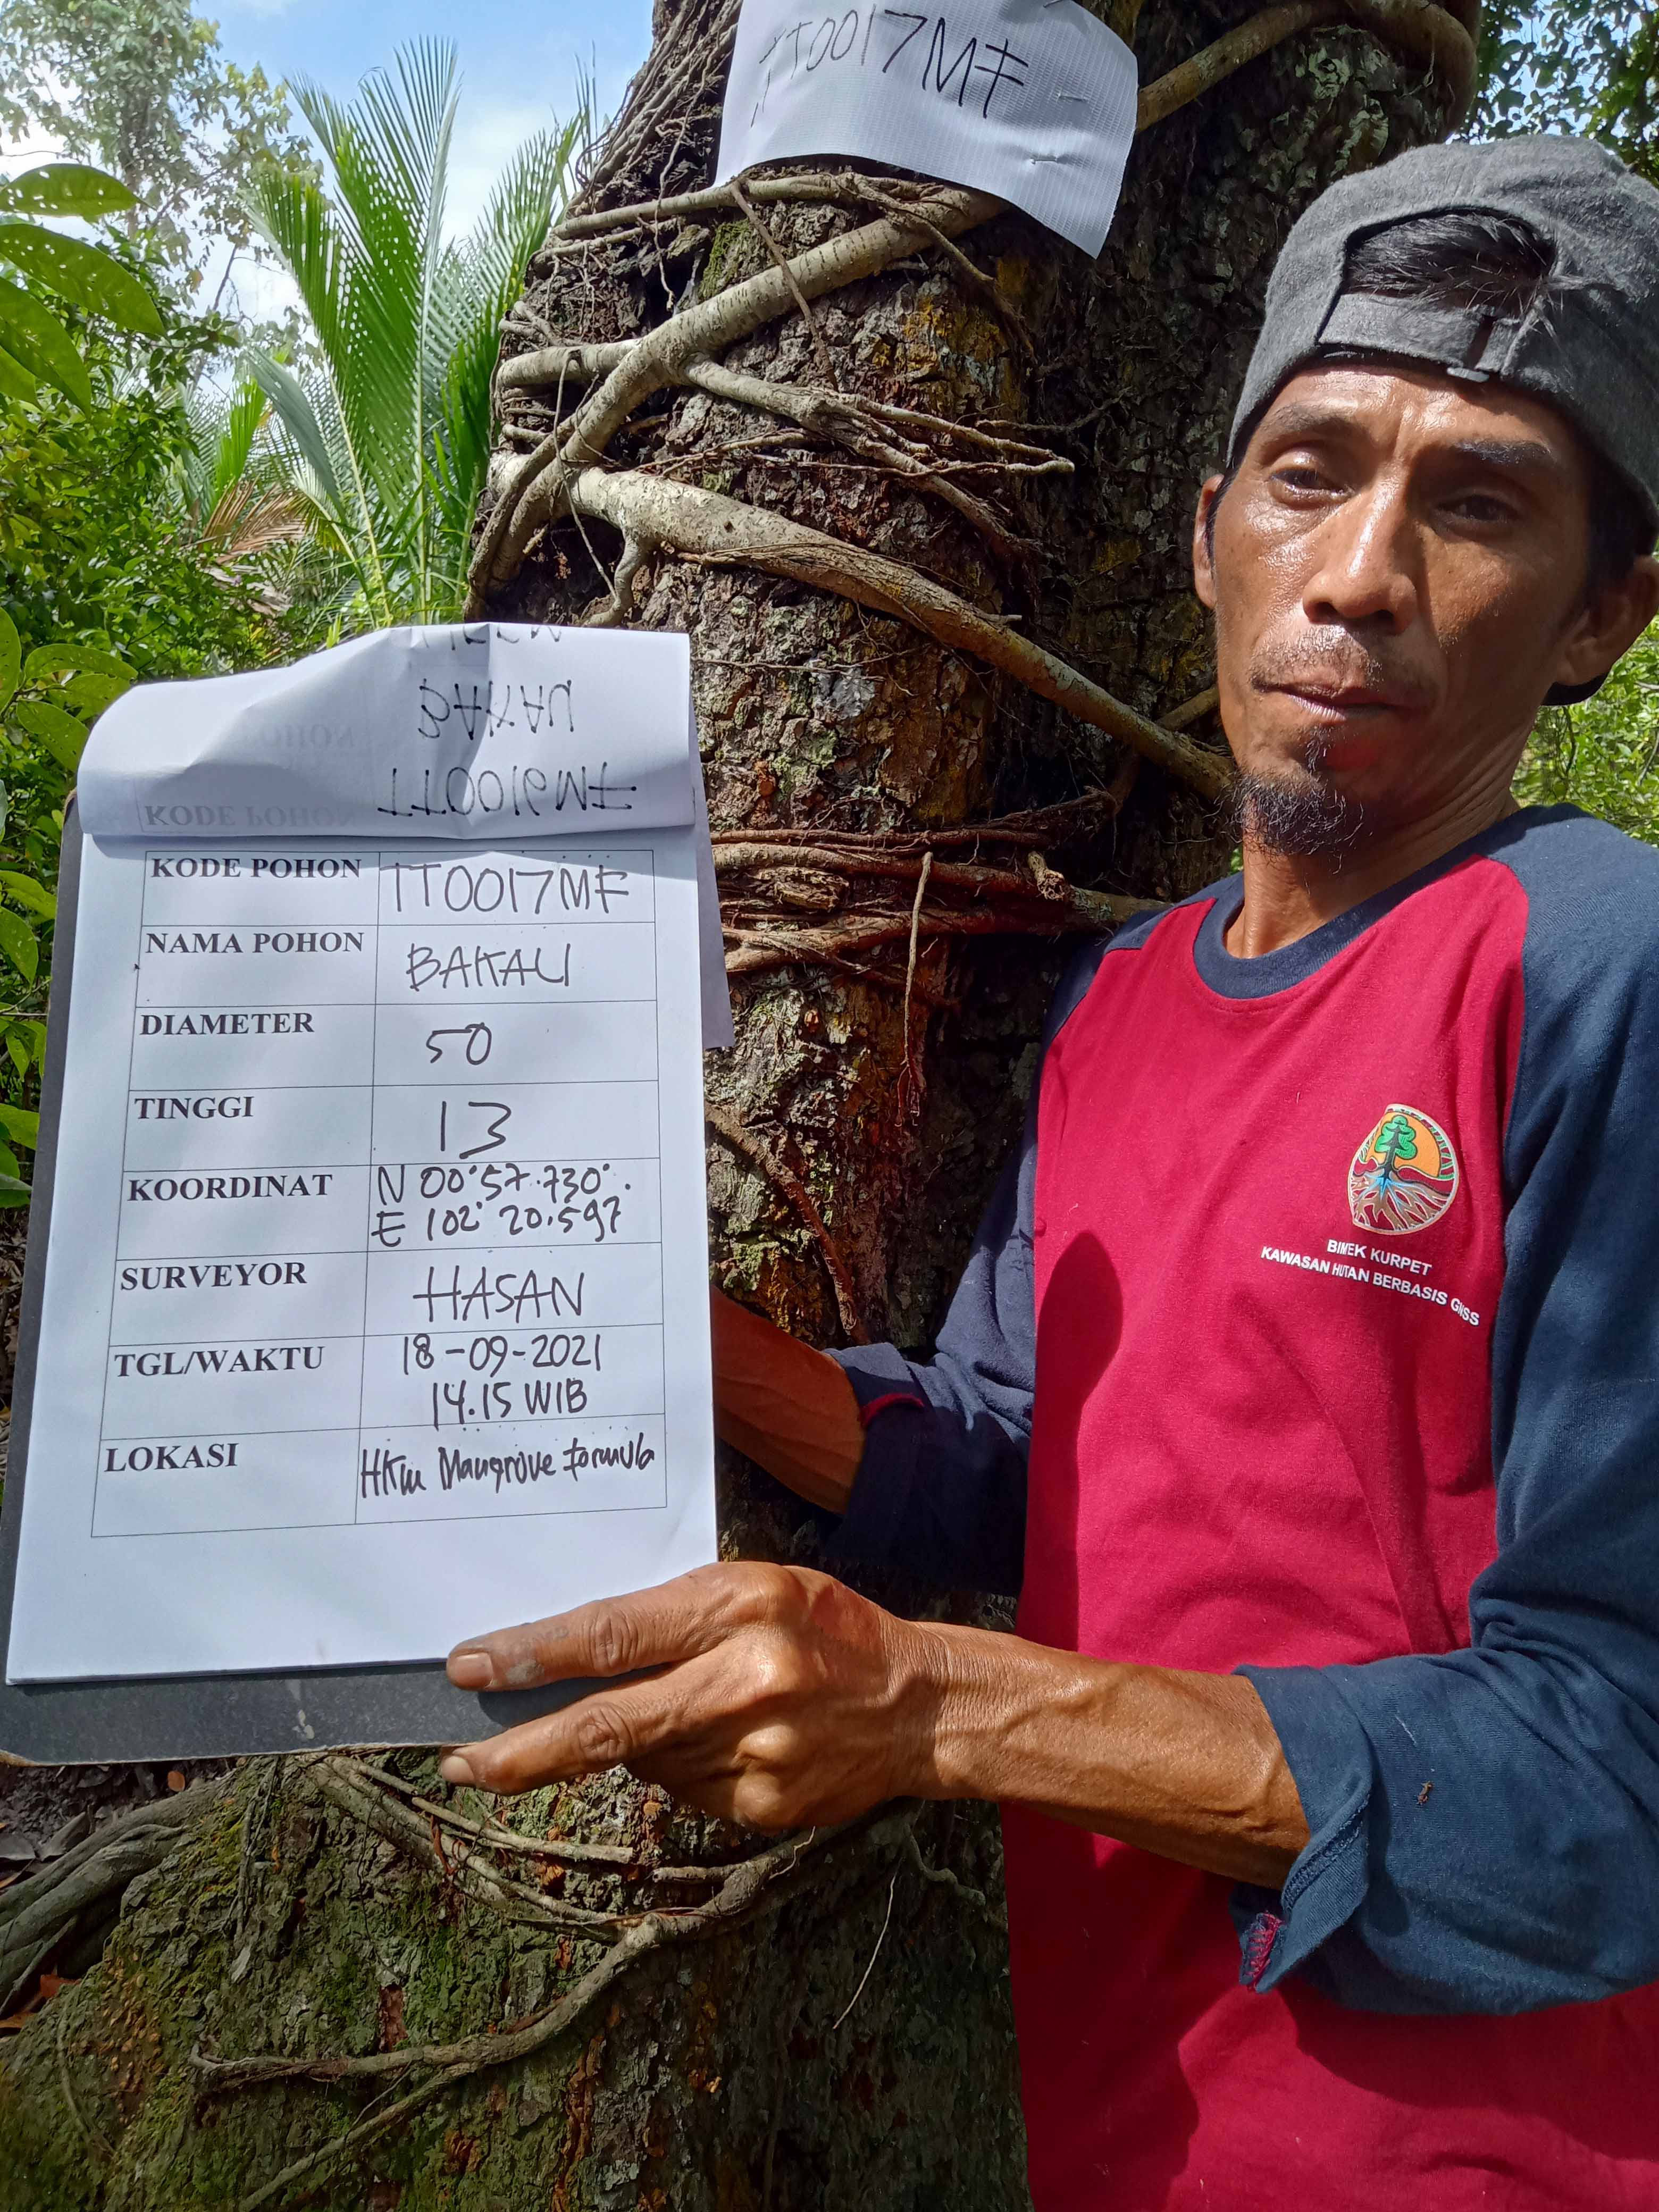 TT0017MF
KODE POHON TT0017MF
NAMA POHON BAKAU
DIAMETER 50
TINGGI 13
KOORDINAT N 00°57.730'.
E 102° 20.597
SURVEYOR HASAN
TGL/WAKTU 18-09-2021
14.15 WIB
LOKASI HKm Mangrove Formula
BIMEK KURPET
KAWASAN HUTAN BERBASIS GNSS